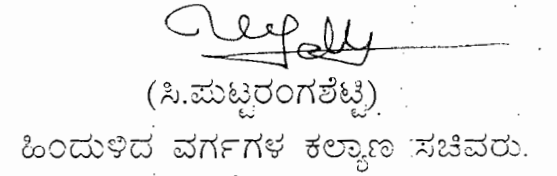 (ಸಿ.ಪುಟ್ಟರಂಗಶೆಟ್ಟಿ)
ಹಿಂದುಳಿದ ವರ್ಗಗಳ ಕಲ್ಯಾಣ ಸಚಿವರು.